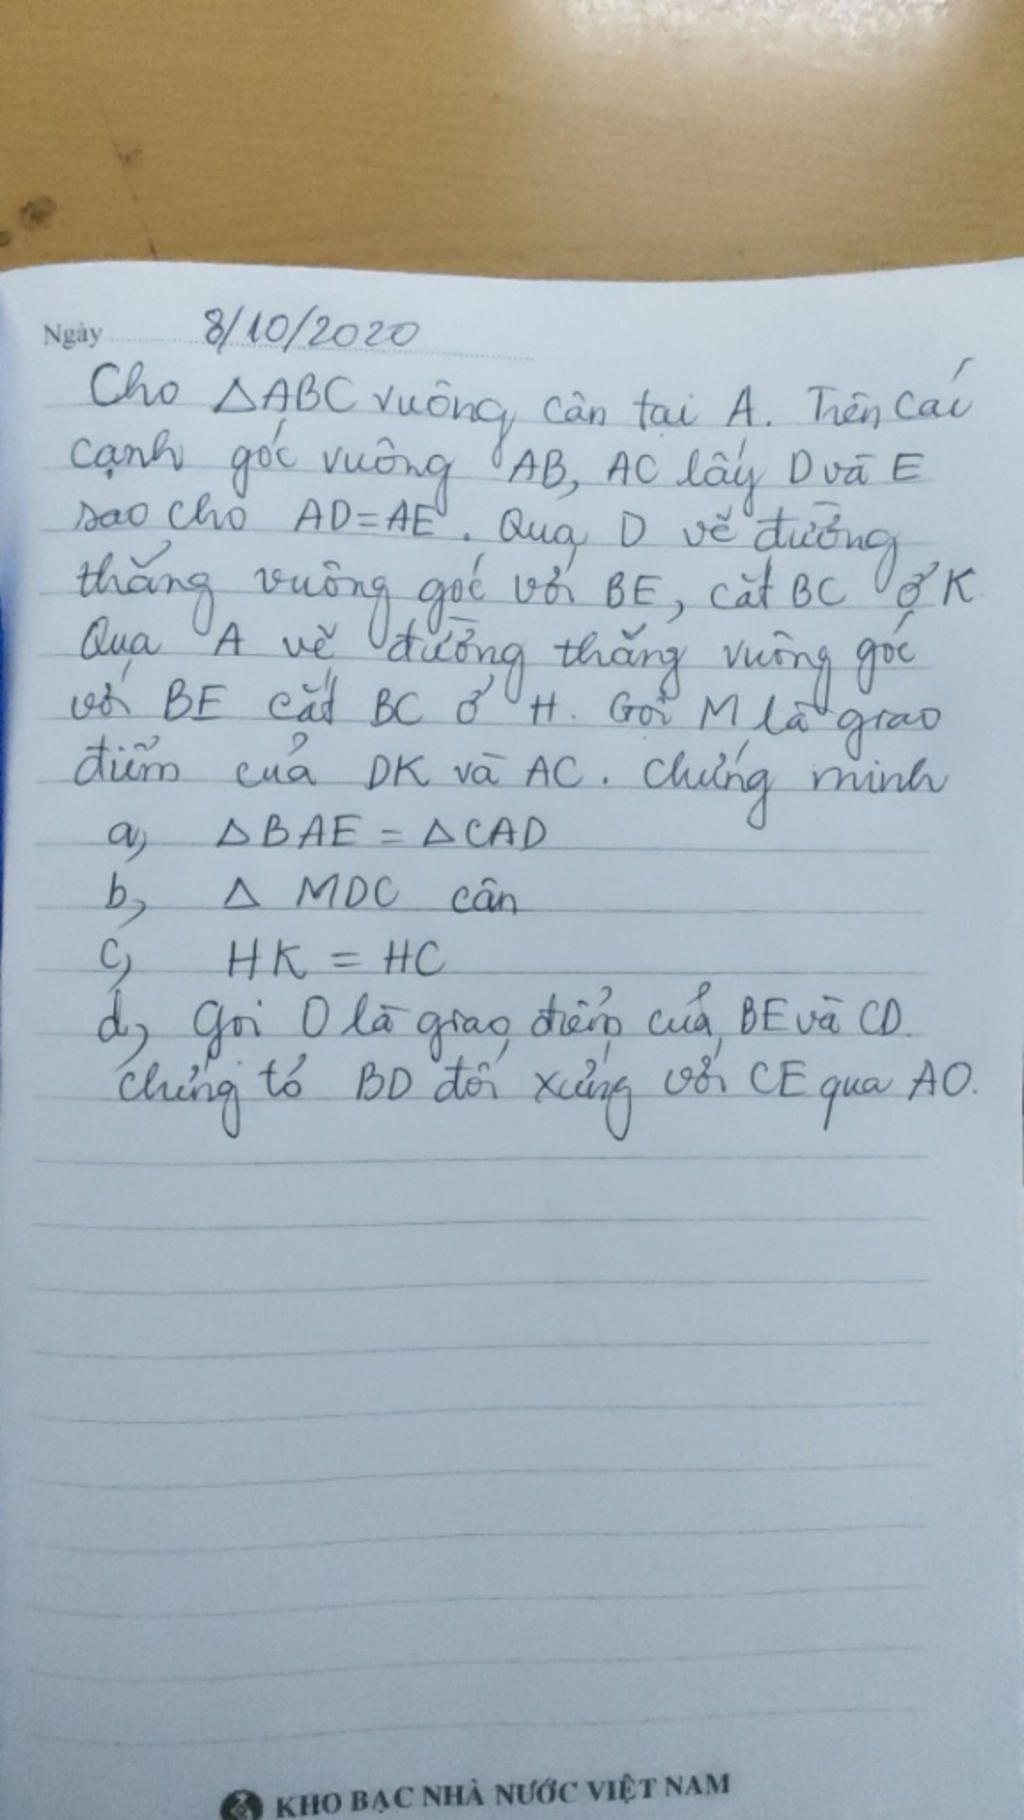 Ngày 8/10/2020
Cho ΔABC vuông cân tại A. Trên các
cạnh góc vuông AB, AC lấy D và E
sao cho AD=AE. Qua D vẽ đường
thẳng vuông góc với BE, cắt BC ở K
Qua A vẽ đường thẳng vuông góc
với BE cắt BC ở H. Gọi M là giao
điểm của DK và AC. Chứng minh
a, ΔBAE = ΔCAD
b, Δ MDC cân
c, HK = HC
d, Gọi O là giao điểm của BE và CD.
Chứng tỏ BD đối xứng với CE qua AO.
KHO BẠC NHÀ NƯỚC VIỆT NAM